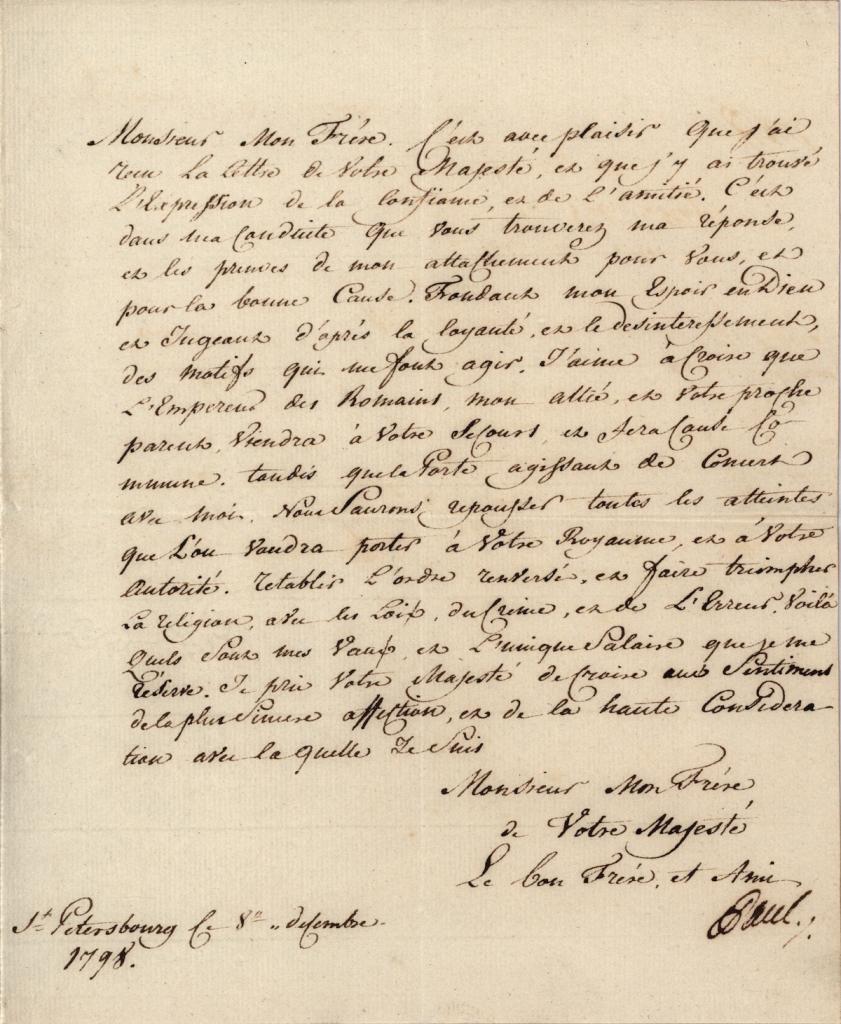 Monsieur Mon Frére. C'est avec plaisir que j'ai
recu La Lettre de Votre Majesté, et que j'y ai trouvé
L'Expression de la Confiance, et de L'amitié. C'est
dans ma Conduite que Vous trouverez ma réponse,
et les preuves de mon attachement pour Vous, et
pour la bonne Cause. Frondant mon Espoir en Dieu
et Jugeant d'aprés la loyauté, et le desinteressement,
des motifs qui me font agir. J'aime à Croire que
L'Empereur des Romains, mon allié, et Votre proche
parent, Viendra à Votre Secours, et fera Cause Co-
mmune. tandis que la Porte agissant de Concert
avec moi. Nous Saurons repousser toutes les atteintes
que L'on Voudra porter à Votre Royaume, et à Votre
Autorité. retablir L'ordre renversé, et faire triompher
La religion, avec les Loix, du Crime, et de L'Erreur. Voilà
Quels Sont mes Vœux, et L'unique Salaire que je me
réserve. Je prie Votre Majesté de Croire aux Sentiments
de la plus Sincere affection, et de la haute Considera-
tion avec la quelle Je Suis
Monsieur Mon Frére
de Votre Majesté
Le bon Frére, et Ami
Paul.
St. Petersbourg Ce 8e decembre
1798.